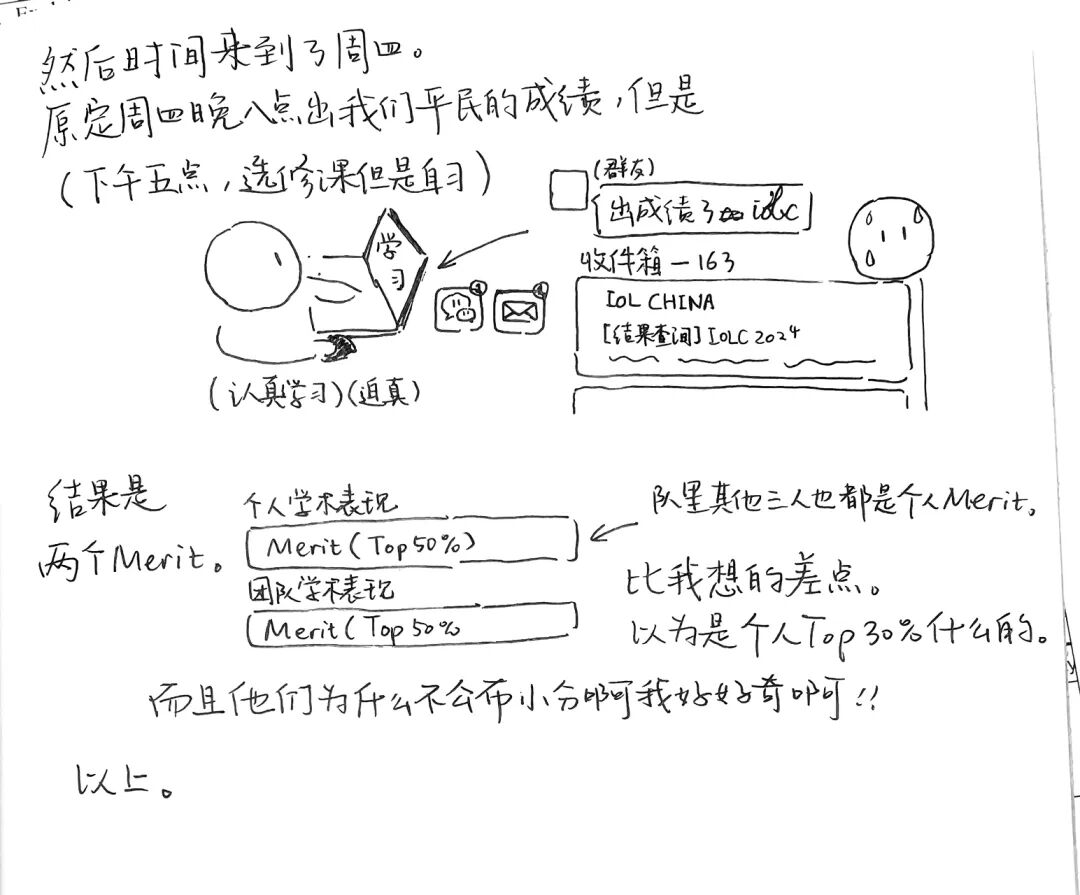 然后时间来到了周四。
原定周四晚八点出我们平民的成绩，但是
（下午五点，选修课但是自习）
（群友）
出成绩了 iolc
学习
收件箱－163
IOL CHINA
[结果查询] IOLC 2024
（认真学习）（迫真）
结果是
两个Merit。
个人学术表现
Merit (Top 50%)
团队学术表现
Merit (Top 50%
队里其他三人也都是个人Merit。
比我想的差点。
以为是个人Top 30%什么的。
而且他们为什么不公布小分啊可我好好奇啊可!!
以上。